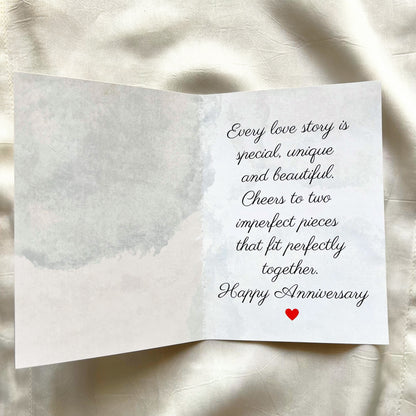 Every love story is
special, unique
and beautiful.
Cheers to two
imperfect pieces
that fit perfectly
together.
Happy Anniversary